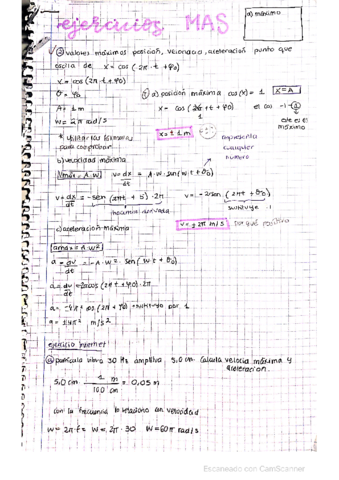 ejercicios MAS
a) máximo
② valores máximos posición, velocidad, aceleración punto que
oscila de x = cos (2π·t + φ0)
x = cos (2π·t + φ0)
θ = φ0
A = 1 m
W = 2π rad/s
① a) posición máxima cos(x) = 1 x=A
x = cos (2π·t + φ0)
1
el cos -1
este es el
máximo
x = ± 1 m
representa
cualquier
número
* utilizar las fórmulas
para comprobar
b) velocidad máxima
Vmáx = A·W
v = dx/dt = A·W·sen(w·t + θ0)
v = dx/dt = -sen (2πt + 5)·2π
v = -2πsen (2πt + θ0)
hacemos derivada
sustituye 1
v = ± 2π m/s
por qué positivo
c) aceleración máxima
amáx = A·W²
a = dv/dt = -A·W²·sen(w·t + θ0)
a = dv/dt = -2πcos (2πt + φ0)·2π
a = -4π² cos (2πt + φ0) sustituyo por 1
a = ±4π² m/s²
ejercicio internet
partícula vibra 30 Hz amplitud 5,0 cm calcula velocidad máxima y
aceleración.
5,0 cm · 1 m / 100 cm = 0,05 m
con la frecuencia lo relaciono con velocidad
W = 2π·f = W = 2π·30 W = 60π rad/s
Escaneado con CamScanner